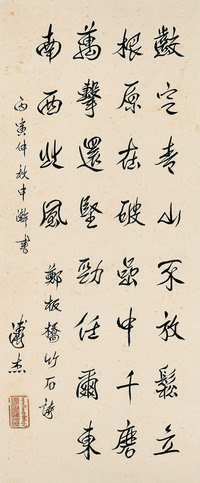 齩定青山不放鬆立
根原在破巖中千磨
萬擊還堅勁任爾東
南西北風
鄭板橋竹石詩
丙寅仲秋中澣書
溥杰